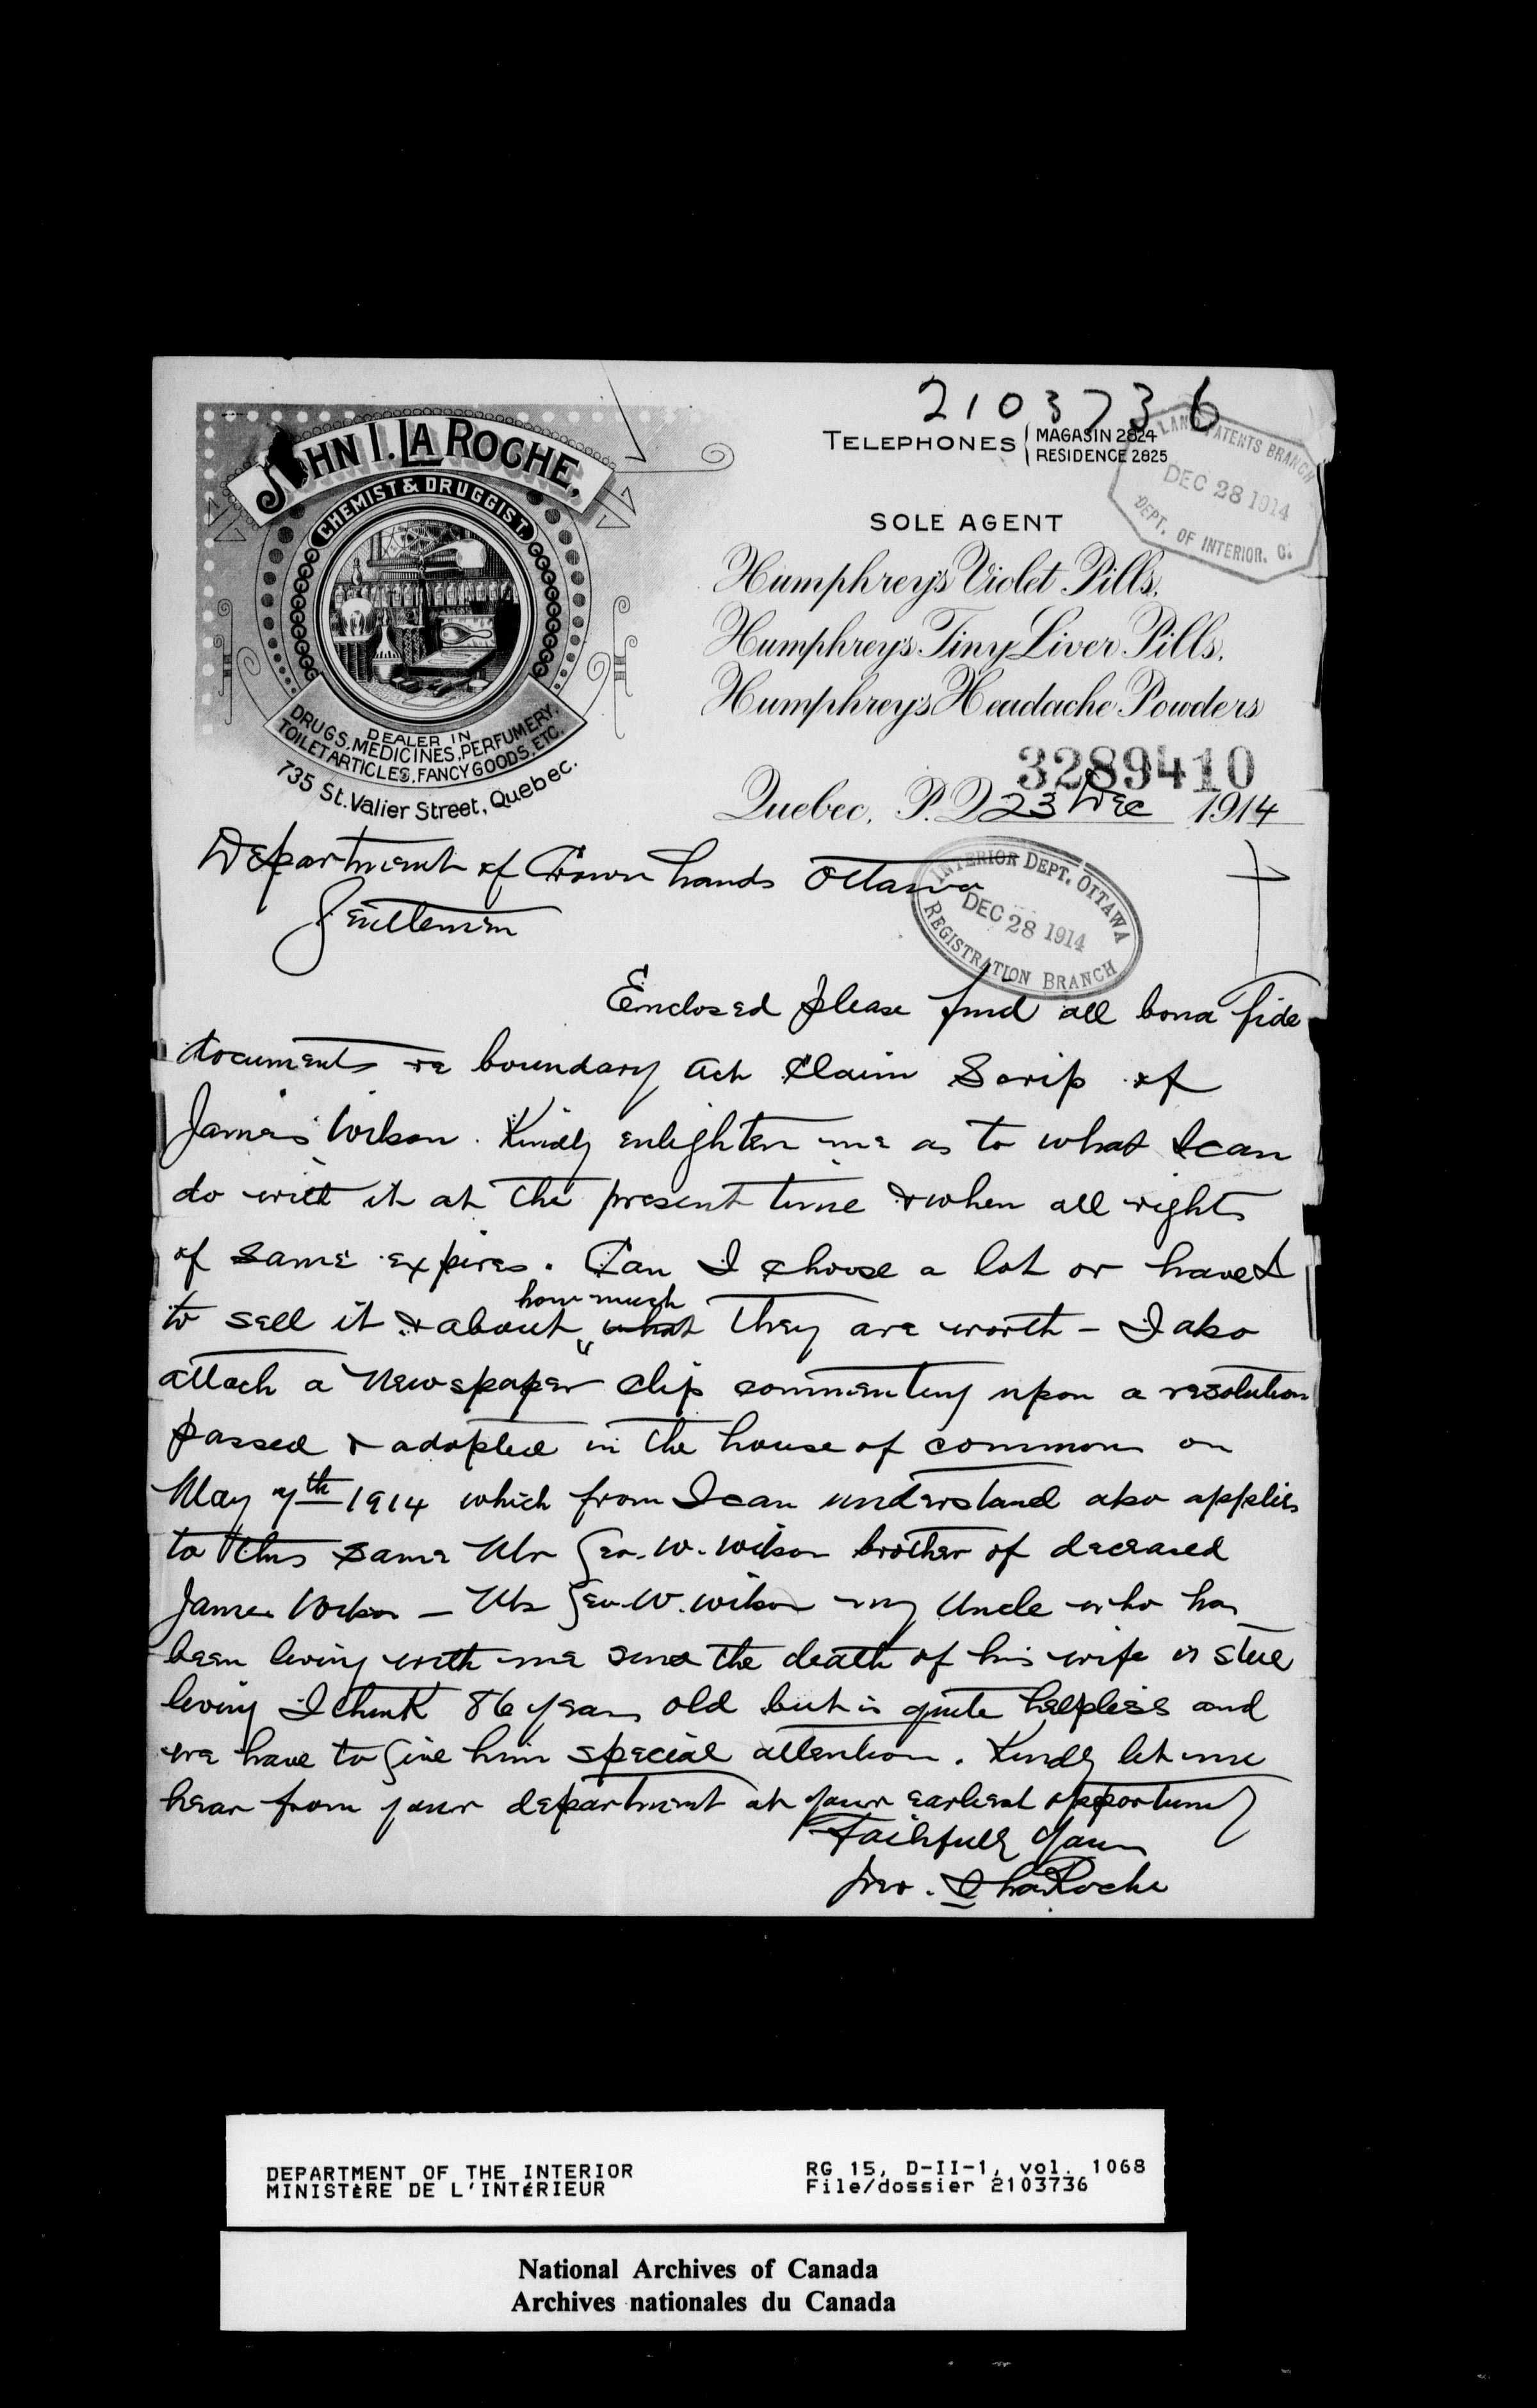 2103736
JOHN I. LA ROCHE,
CHEMIST & DRUGGIST.
DEALER IN
DRUGS, MEDICINES, PERFUMERY,
TOILET ARTICLES, FANCY GOODS, ETC.
735 St. Valier Street, Quebec.
TELEPHONES MAGASIN 2824
RESIDENCE 2825
LAND PATENTS BRANCH
DEC 28 1914
DEPT. OF INTERIOR. C.
SOLE AGENT
Humphrey's Violet Pills.
Humphrey's Tiny Liver Pills.
Humphrey's Headache Powders
3289410
Quebec, P.Q 23 Dec 1914
Department of Crown Lands Ottawa
INTERIOR DEPT. OTTAWA
DEC 28 1914
REGISTRATION BRANCH
Gentlemen
Enclosed please find all bona fide
documents re boundary act claim Scrip of
James Wilson. Kindly enlighten me as to what I can
do with it at the present time & when all rights
of same expires. Can I choose a lot or have I
to sell it & about how much what they are worth - I also
attach a Newspaper clip commenting upon a resolution
passed & adopted in the house of commons on
May 7th 1914 which from I can understand also applies
to this same Mr Geo. W. Wilson brother of deceased
James Wilson - Mr Geo. W. Wilson my Uncle who has
been living with me since the death of his wife is still
living I think 86 years old but is quite helpless and
we have to give him special attention. Kindly let me
hear from your department at your earliest opportunity
Faithfully Yours
Jno. I LaRoche
DEPARTMENT OF THE INTERIOR
MINISTÈRE DE L'INTÉRIEUR
RG 15, D-II-1, vol. 1068
File/dossier 2103736
National Archives of Canada
Archives nationales du Canada